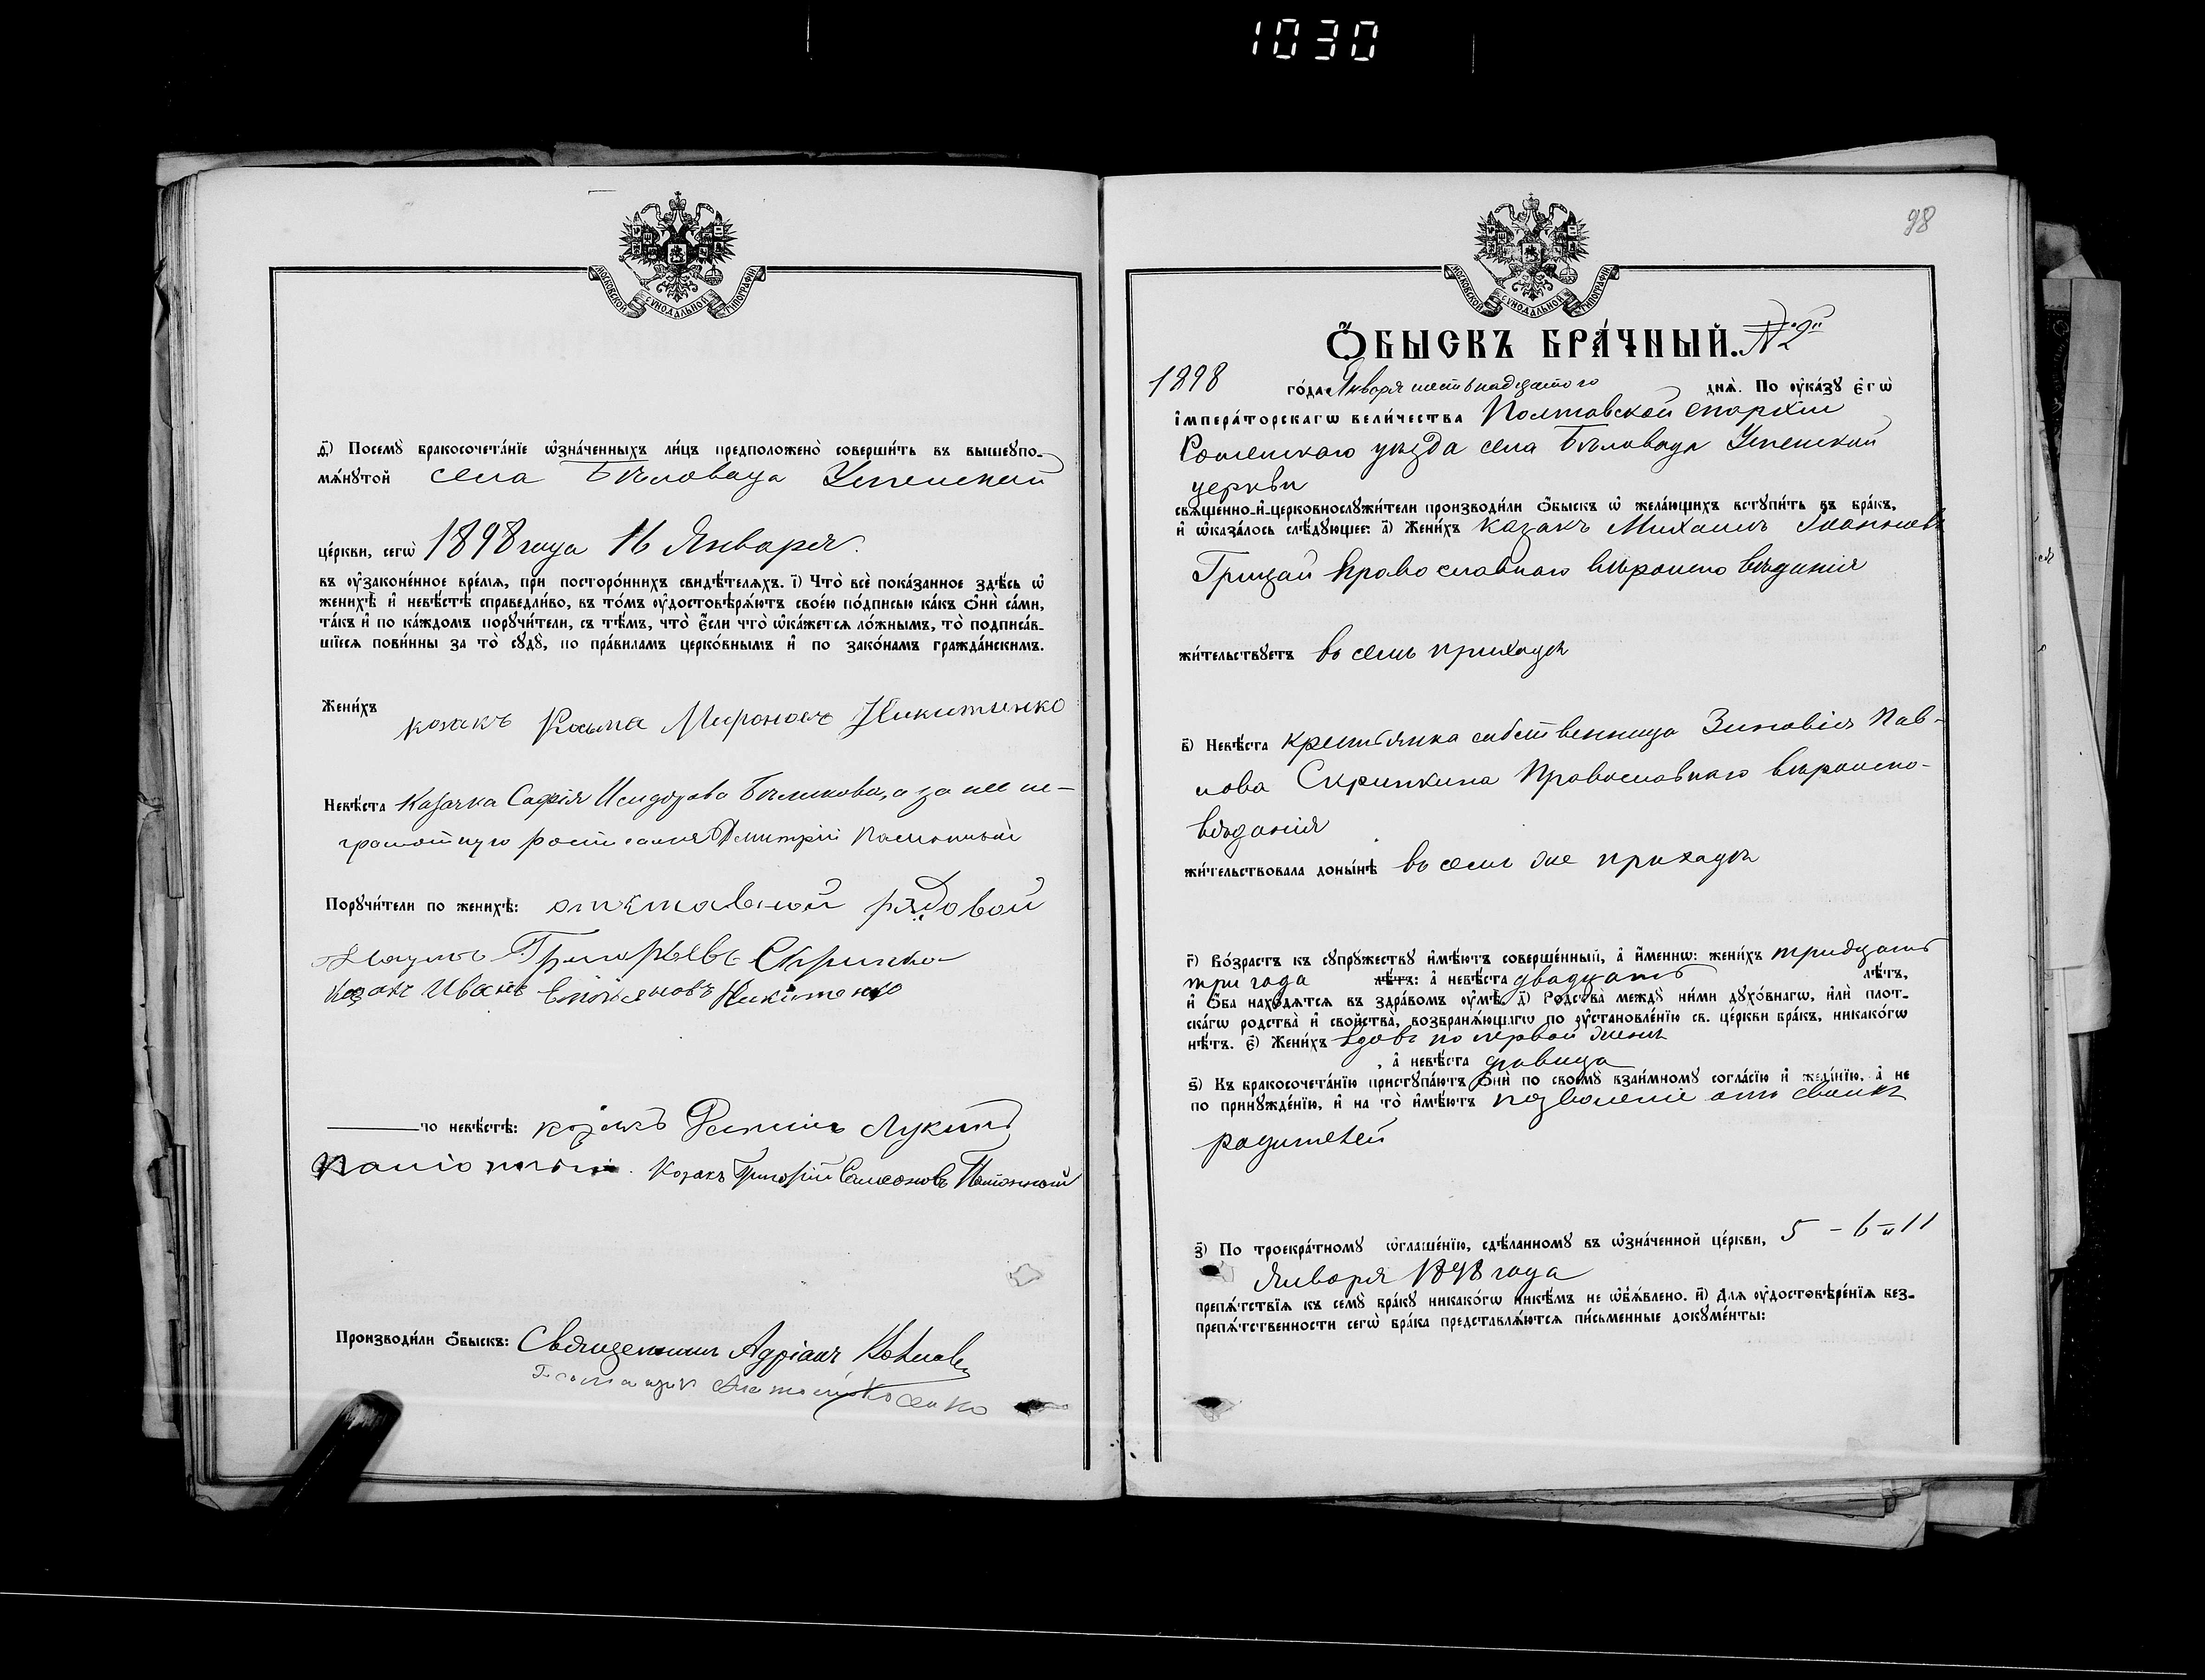 1030
МОСКОВСКОЙ СѴНОДАЛЬНОЙ ТИПОГРАФІИ
д҃) Посемꙋ̀ бракосочета́нїе ѡ҆зна́ченныхъ ли́цъ предположено̀ соверши́ть въ вышеꙋпо-
мѧ́нꙋтой села Бѣловода Успенской
це́ркви, сегѡ̀ 1898 года 16 Января.
въ ᲂу҆законе́нное вре́мѧ, при посторо́ннихъ свидѣ́телѧхъ. і҃) Что̀ всѐ пока́занное здѣ́сь ѡ҆
женихѣ̀ и҆ невѣ́стѣ справедли́во, въ то́мъ ᲂу҆достовѣрѧ́ютъ свое́ю по́дписью ка́къ ѻ҆нѝ са́ми,
та́къ и҆ по ка́ждомъ порꙋчи́тели, съ тѣ́мъ, что̀ є҆́сли что̀ ѡ҆ка́жетсѧ ло́жнымъ, то̀ подписа́в-
шїесѧ пови́нны за то̀ сꙋдꙋ̀, по пра́виламъ церко́внымъ и҆ по зако́намъ гражда́нскимъ.
Жени́хъ козакъ Косма Мироновъ Никитенко
Невѣ́ста Козачка Софія Исидорова Бѣликова, а за нее не-
грамотную росписался Дмитрій
Порꙋчи́тели по женихѣ̀: отставной рядовой
Наумъ Григорьевъ Скрипка
Козакъ Иванъ Никитенко
по невѣ́стѣ: козакъ Лукинъ
Козакъ Григорій Самсоновъ
Производи́ли ѻ҆́быскъ: Священникъ Адріанъ
98
МОСКОВСКОЙ СѴНОДАЛЬНОЙ ТИПОГРАФІИ
Ѻ҆́БЫСКЪ БРА́ЧНЫЙ. № 2й
1898 го́да Января шестьнадцатого днѧ̀. По ᲂу҆ка́зꙋ є҆гѡ̀
і҆мпера́торскагѡ вели́чества Полтавской епархіи
Роменскаго уѣзда села Бѣловода Успенской
церкви
свѧще́нно-и҆-церковнослꙋжи́тели производи́ли ѻ҆́быскъ ѡ҆ жела́ющихъ встꙋпи́ть въ бра́къ,
и҆ ѡ҆каза́лось слѣ́дꙋющее: а҃) Жени́хъ казакъ Михаилъ Іоанновъ
Грицай православнаго вѣроисповѣданія
жи́тельствꙋетъ въ семъ приходѣ
в҃) Невѣ́ста крестьянка собственница Зиновія Пав-
лова Скрипкина Православнаго вѣроиспо-
вѣданія
жи́тельствовала доны́нѣ въ семъ же приходѣ
г҃) Во́зрастъ къ сꙋпрꙋ́жествꙋ и҆мѣ́ютъ соверше́нный, а҆ и҆́менно: жени́хъ тридцать
три года лѣ́тъ: а҆ невѣ́ста двадцать лѣ́тъ,
и҆ ѻ҆́ба нахо́дѧтсѧ въ здра́вомъ ᲂу҆мѣ̀. д҃) Родства̀ междꙋ̀ ни́ми дꙋхо́внагѡ, и҆лѝ плот-
ска́гѡ родства̀ и҆ свойства̀, возбранѧ́ющагѡ по ᲂу҆становле́нїю св. це́ркви бра́къ, никако́гѡ
нѣ́тъ. є҃) Жени́хъ вдовъ по первой женѣ
, а҆ невѣ́ста дѣвица
ѕ҃) Къ бракосочета́нїю пристꙋпа́ютъ ѻ҆нѝ по своемꙋ̀ взаи́мномꙋ согла́сїю и҆ жела́нїю, а҆ не
по принꙋжде́нїю, и҆ на то̀ и҆мѣ́ютъ позволеніе отъ своихъ
родителей
з҃) По троекра́тномꙋ ѡ҆глаше́нїю, сдѣ́ланномꙋ въ ѡ҆зна́ченной це́ркви, 5 - 6 и 11
Января 1898 года
препѧ́тствїѧ къ семꙋ̀ бра́кꙋ никако́гѡ никѣ́мъ не ѡ҆б̾ѧ́влено. и҃) Длѧ ᲂу҆достовѣре́нїѧ без-
препѧ́тственности сегѡ̀ бра́ка представлѧ́ютсѧ пи́сьменные докꙋме́нты: